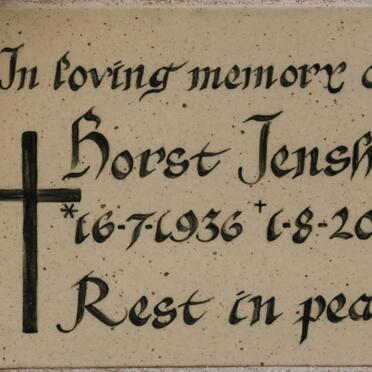 In loving memory o
Horst Jensh
*16-7-1936 †1-8-20
Rest in pea